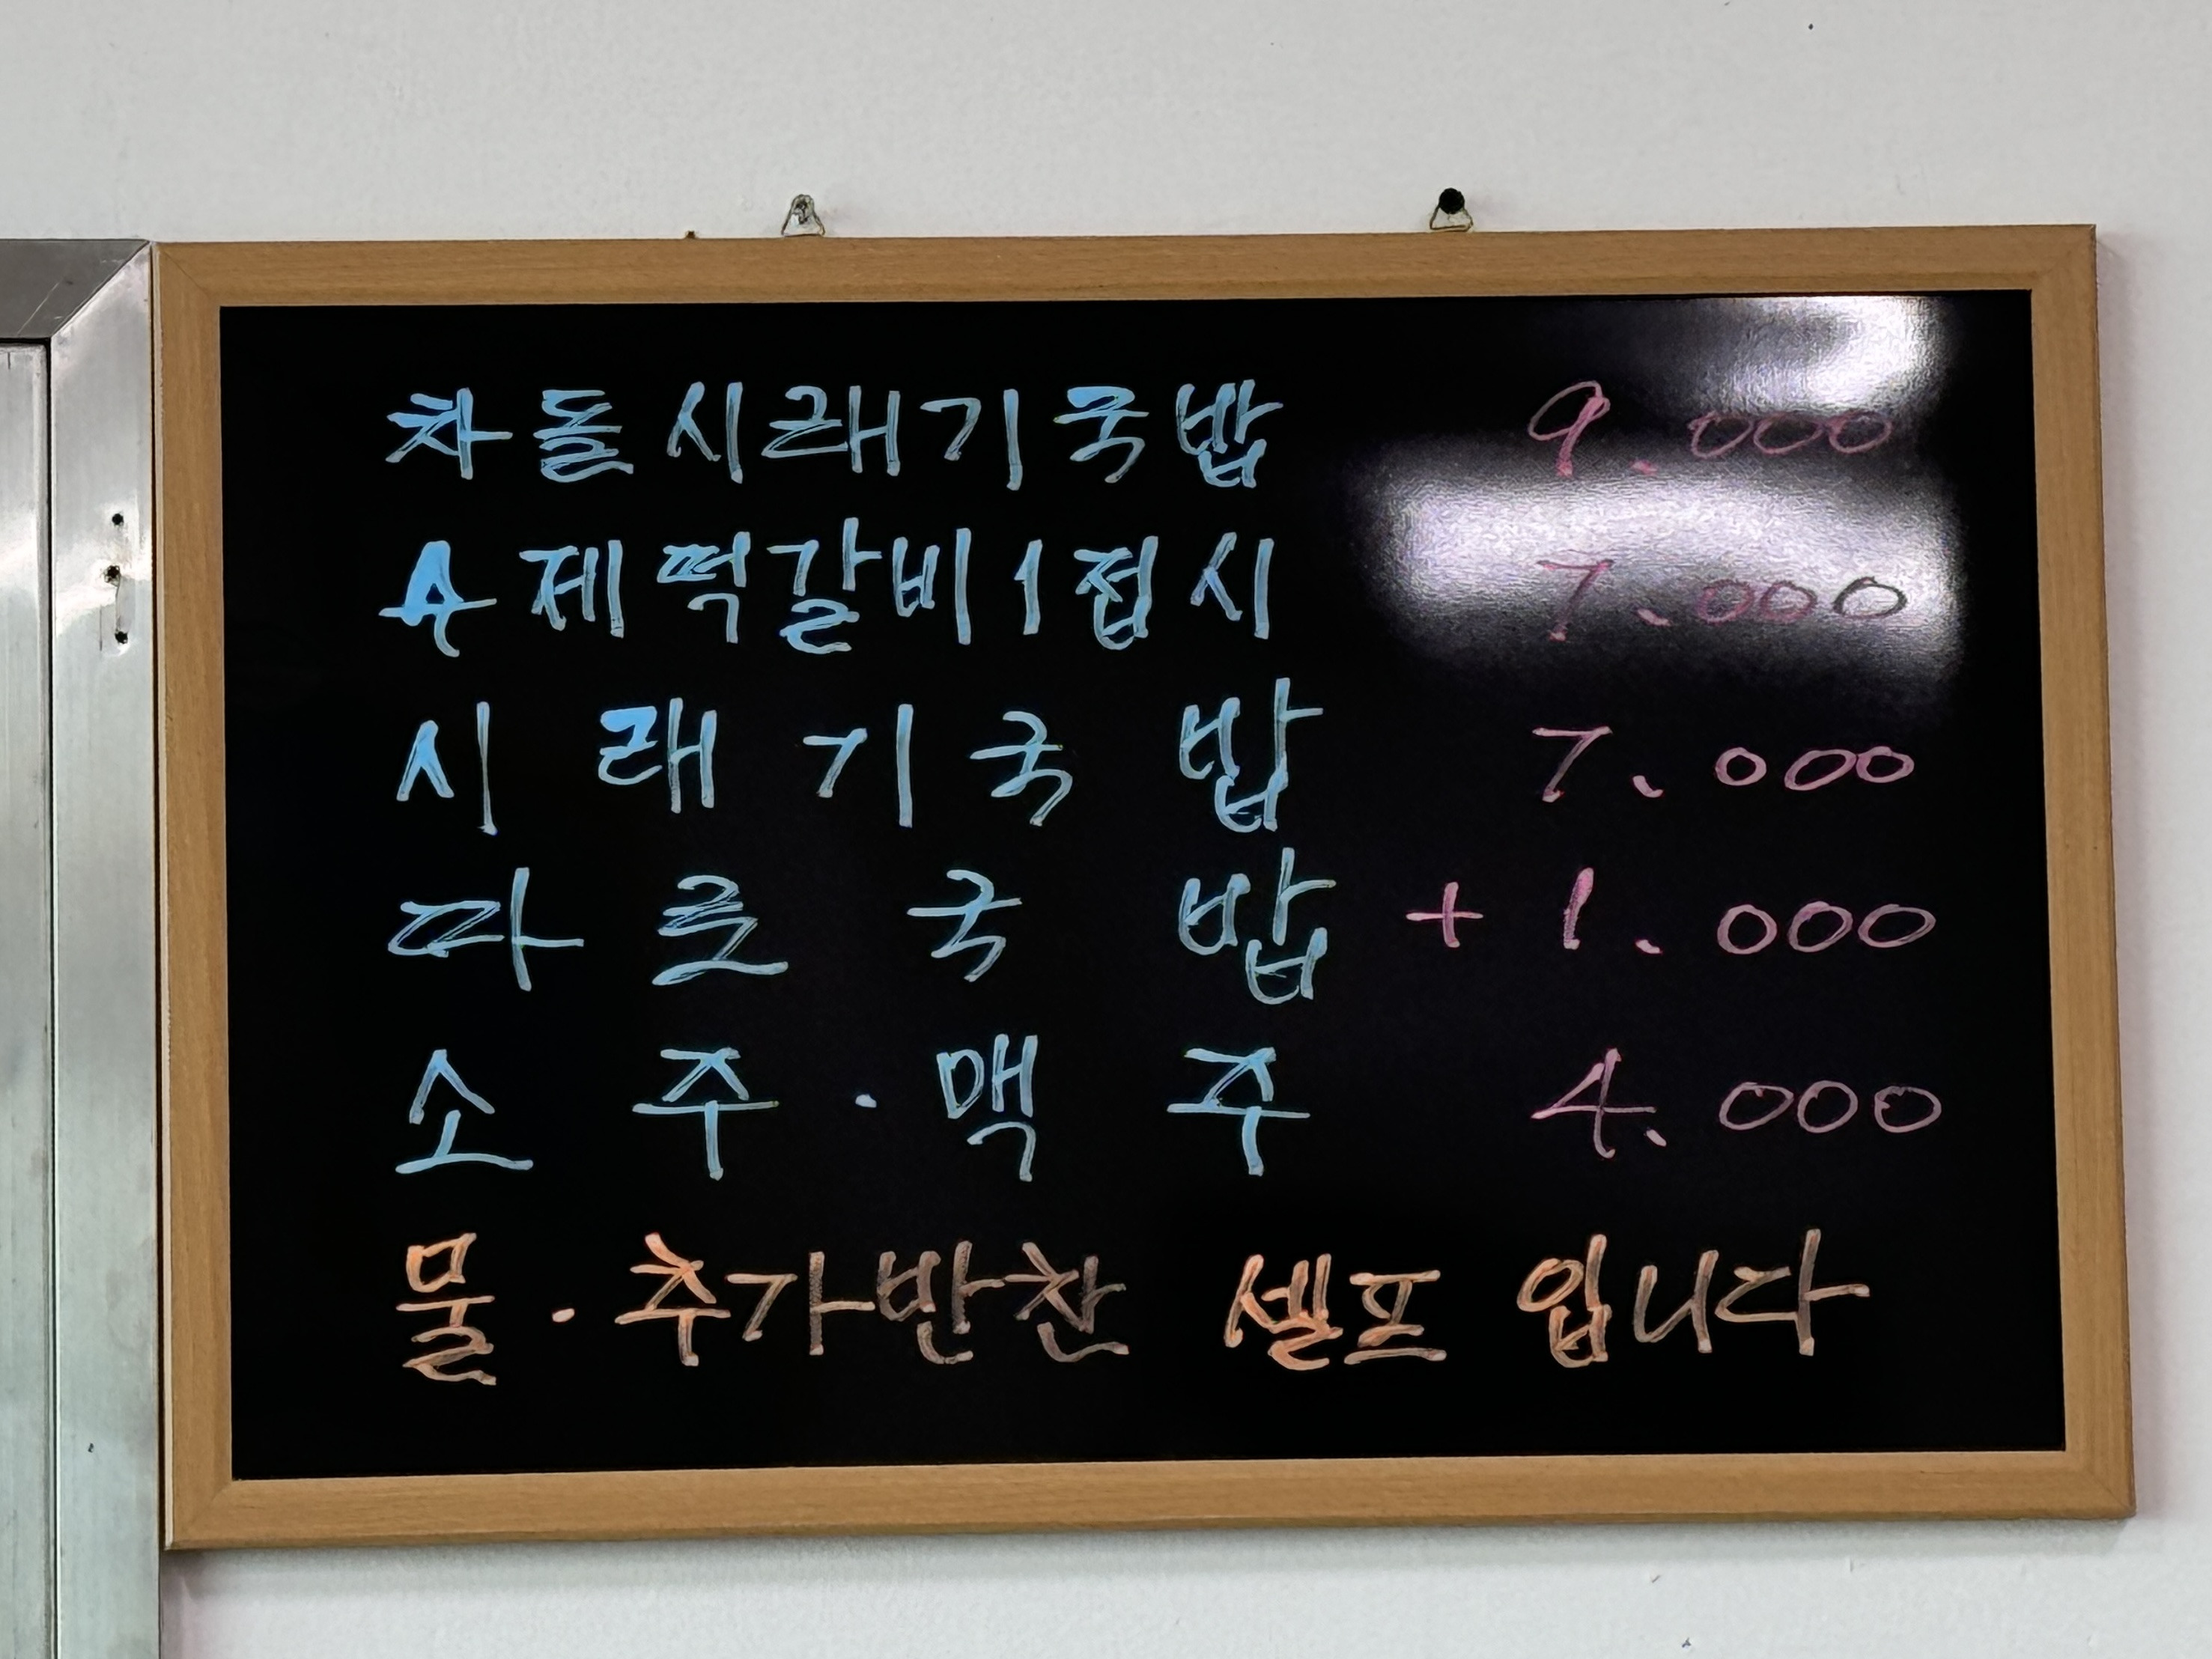 차돌시래기국밥 9.000
수제떡갈비1접시 7.000
시래기국밥 7.000
따로국밥 +1.000
소주·맥주 4.000
물·추가반찬 셀프 입니다